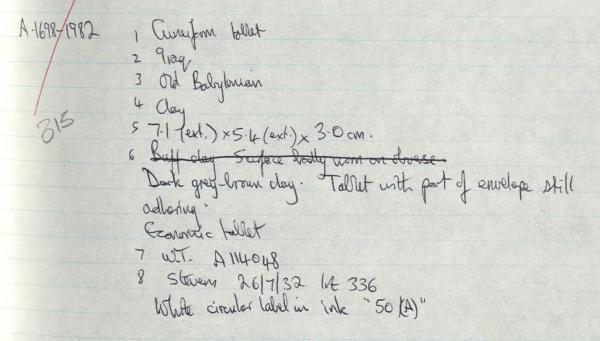 A.1698-1982
1 Cuneiform tablet
2 Iraq
3 Old Babylonian
315
4 Clay
5 7.1 (ext.) x 5.4 (ext.) x 3.0 cm.
6 Buff clay Surface badly worn on obverse
Dark grey-brown clay. Tablet with part of envelope still
adhering.
Economic tablet
7 W.T. A114048
8 Stevens 26/7/32 lot 336
White circular label in ink "50 (A)"